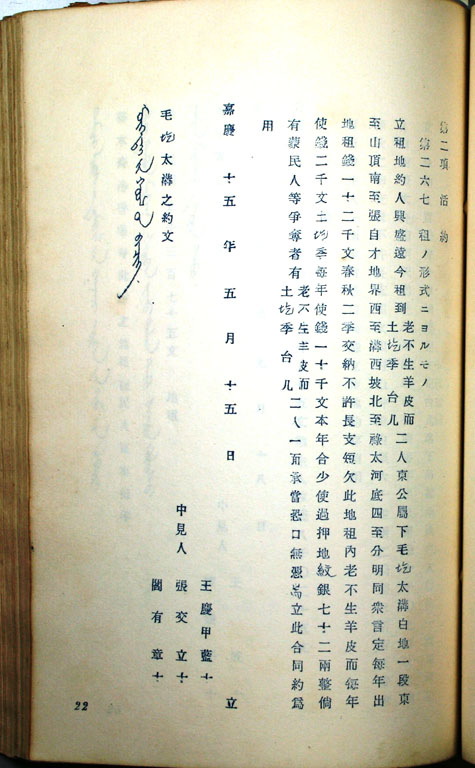 第二項 活約
第二六七 租ノ形式ニヨルモノ
立租地約人興盛遠今租到老不生羊皮而土圪季台儿二人東公屬下毛圪太溝白地一段東
至山頂南至張自才地界西至溝西坡北至祿太河底四至分明同衆言定每年出
地租錢一十二千文春秋二季交納不許長支短欠此地租內老不生羊皮而每年
使錢二千文土圪季每年使錢一十千文本年合少使過押地紋銀七十二兩整倘
有蒙民人等爭奪者有老不生羊皮而土圪季台儿二人一面承當恐口無憑爲立此合同約爲
用
嘉慶十五年五月十五日 立
王慶甲藍十
中見人 張交立十
閻有章十
毛圪太溝之約文
22